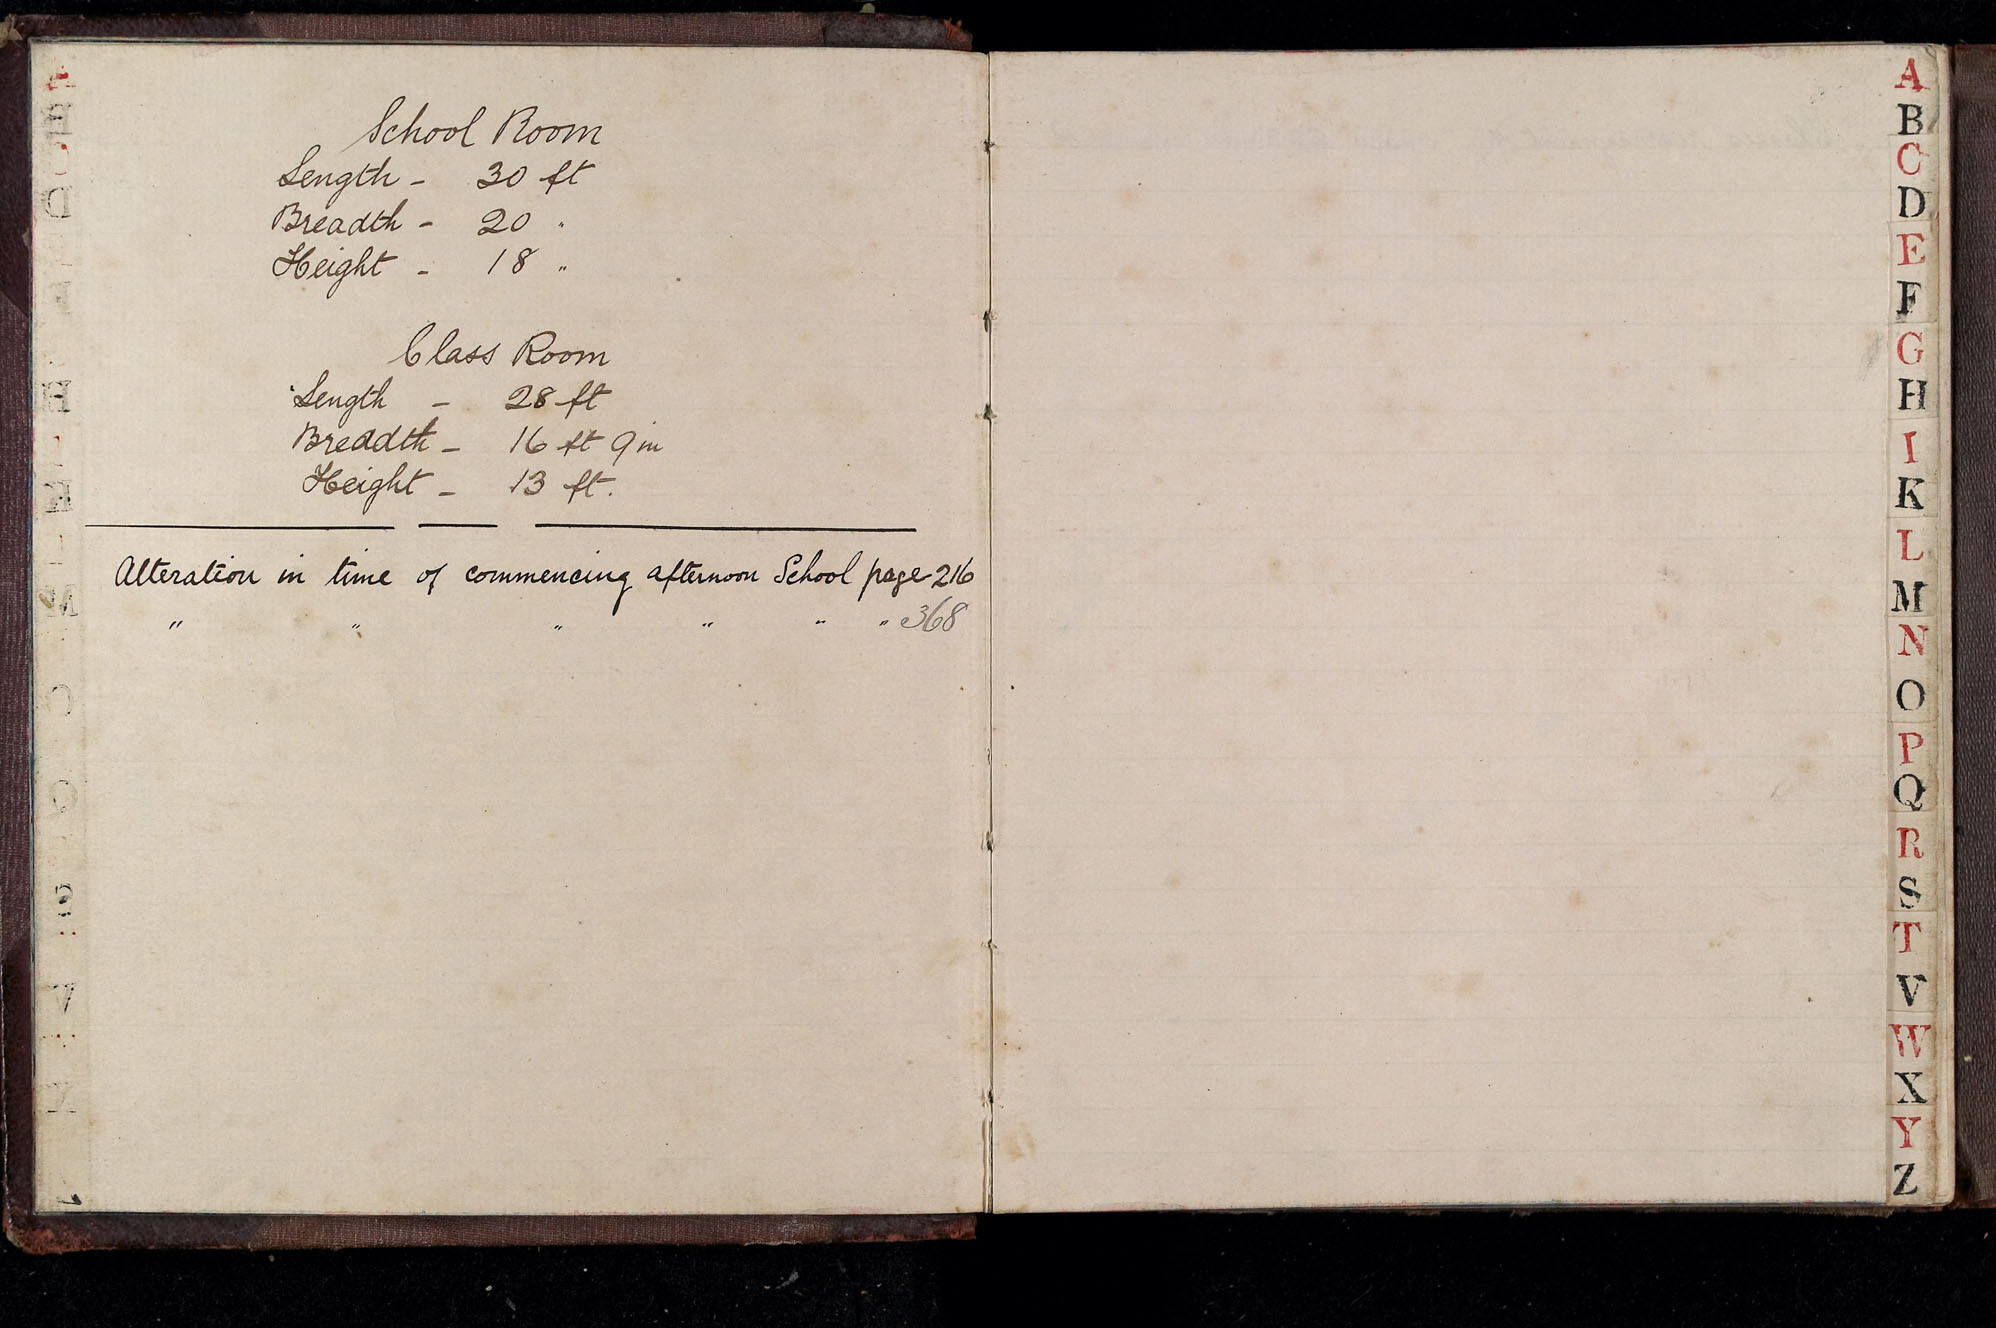 School Room
Length - 30 ft
Breadth - 20 "
Height - 18 "
Class Room
Length - 28 ft
Breadth - 16 ft 9 in
Height - 13 ft.
Alteration in time of commencing afternoon School page 216
" " " " " " 368
A
B
C
D
E
F
G
H
I
K
L
M
N
O
P
Q
R
S
T
V
W
X
Y
Z